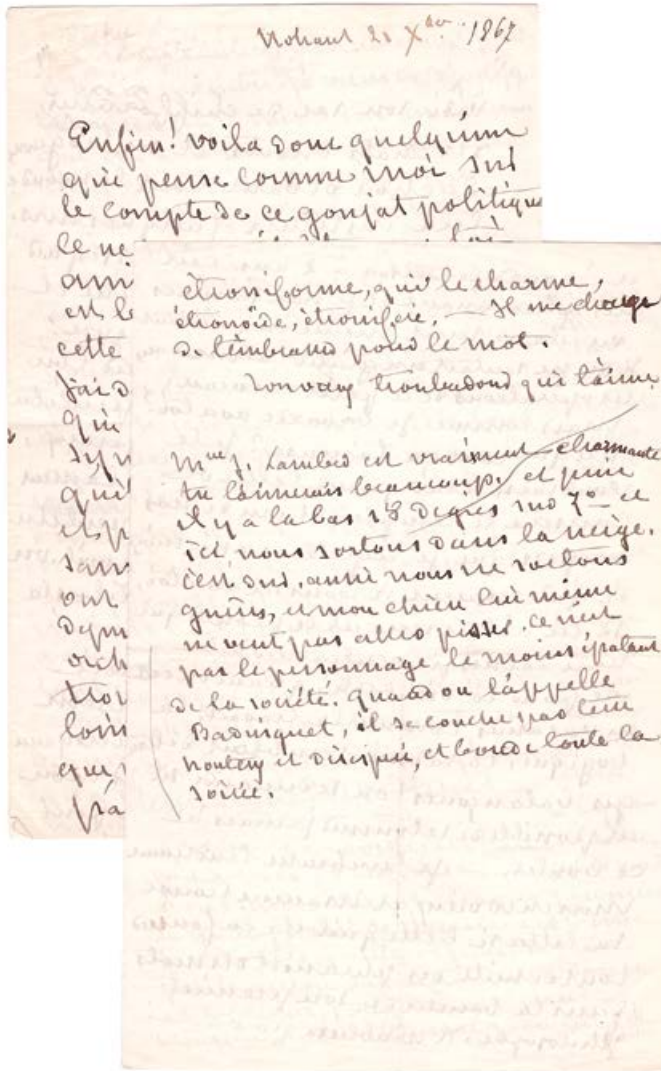 Nohant 21 Xbre 1867
Enfin! voila donc quelqu'un
qui pense comme moi sur
le compte de ce goujat politique
ce ne
ami
est l
cette
j'ai d
qui
syn
qui
et p
sans
ont
dym
och
trou
loin
que
pa
étroniforme, qui le charme,
étronoïde, étronifère, — Il me charge
de l'embrasser pour le mot.
ton vieux troubadour qui t'aime
Mme J. Lamber est vraiment charmante
tu l'aimerais beaucoup. et puis
il y a la bas 18 degrés sur 70 et
ici nous sortons dans la neige.
c'est dur, aussi nous ne sortons
guères, et mon chien lui même
ne veut pas aller pisser. ce n'est
pas le personnage le moins épatant
de la société. quand on l'appelle
Badinguet, il se couche par terre
honteux et désespéré, et boude toute la
soirée.